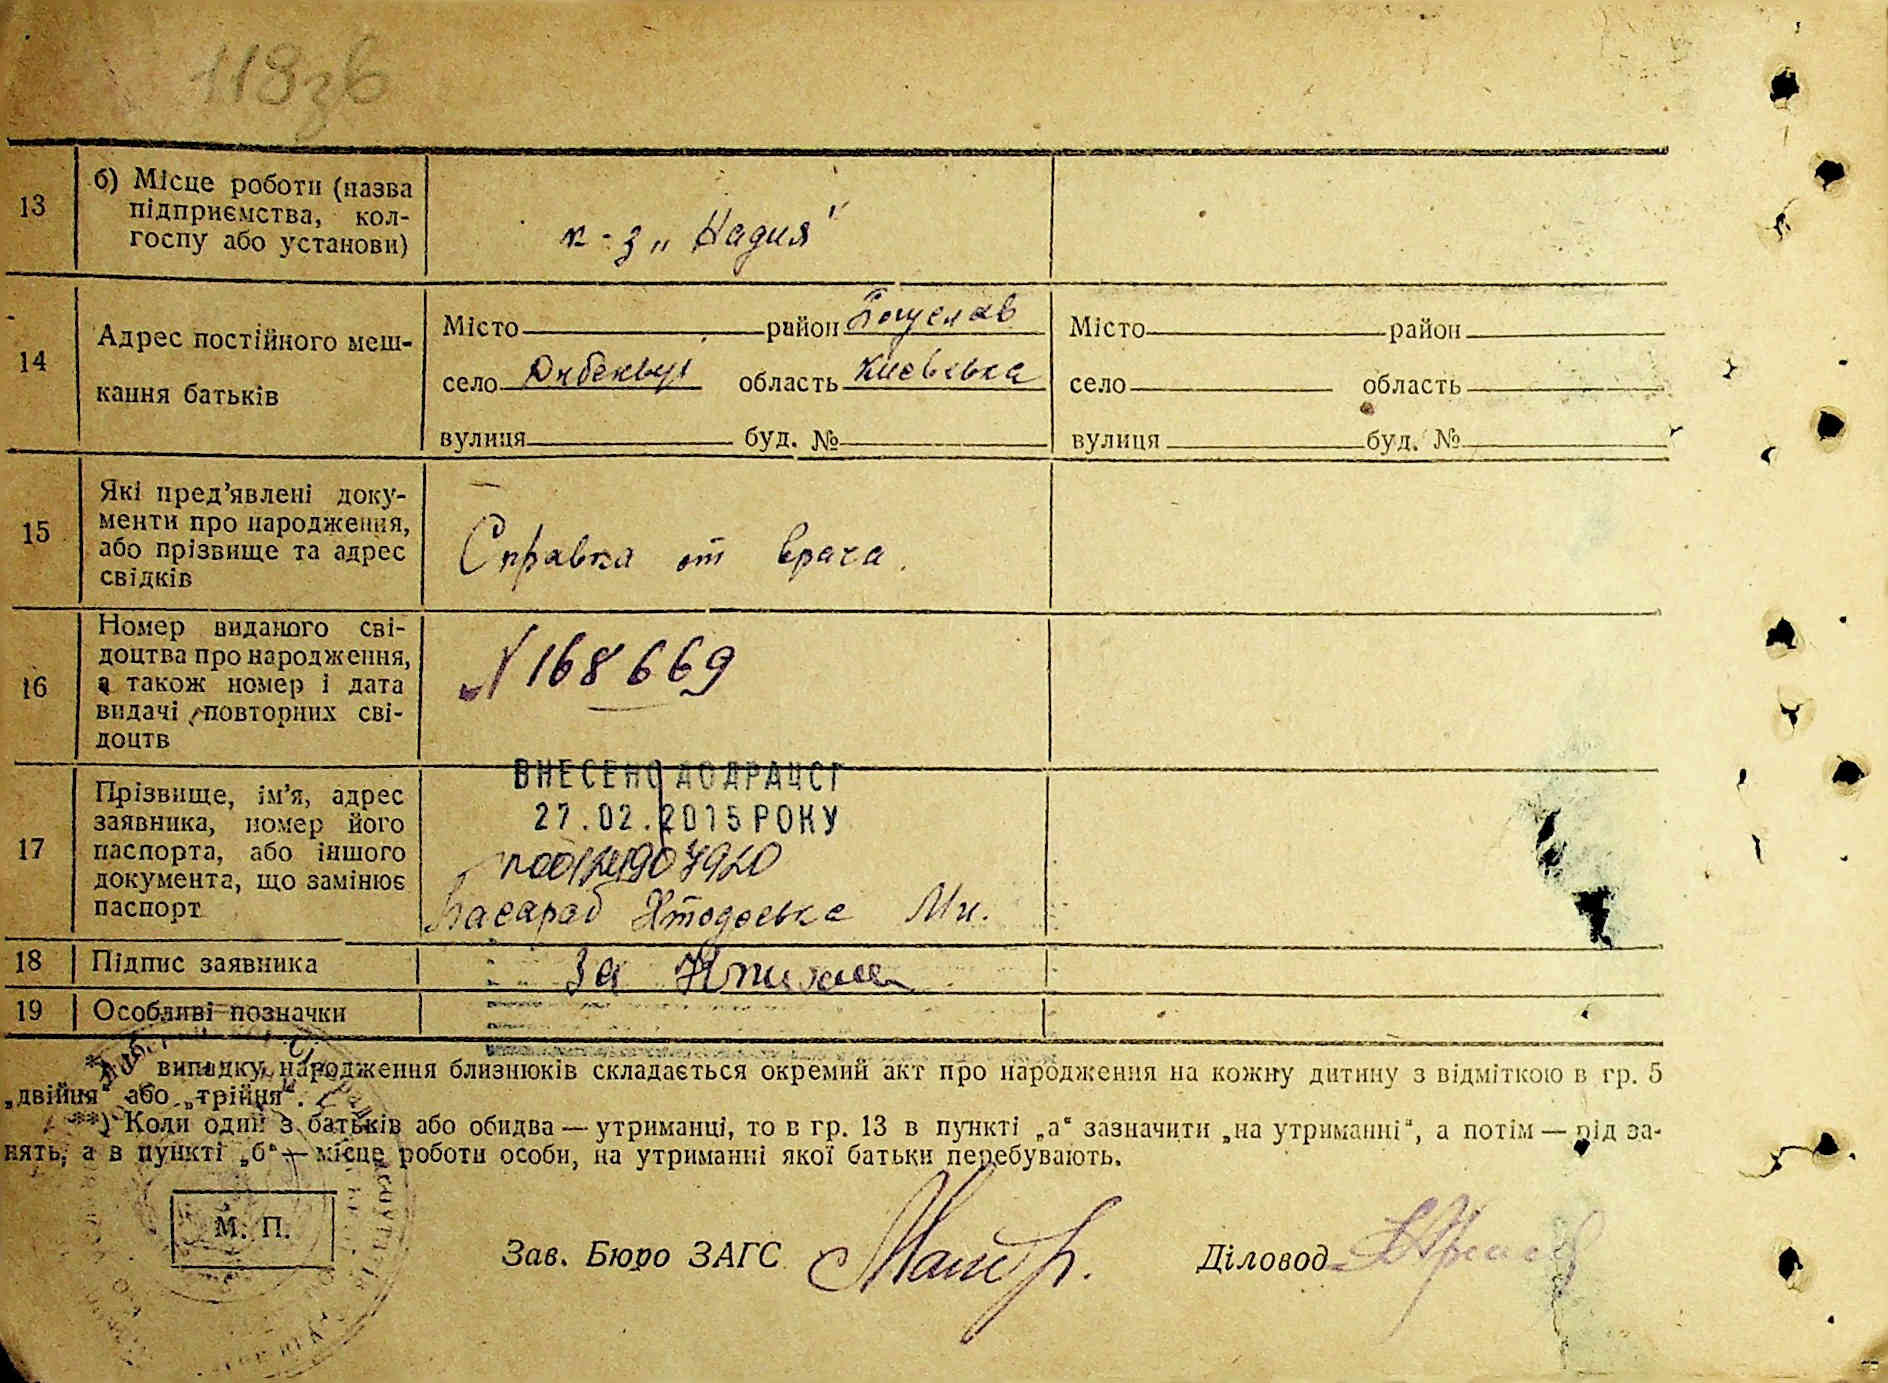 118зв
13
б) Місце роботи (назва
підприємства, кол-
госпу або установи)
к-з „Надия"
14
Адрес постійного меш-
кання батьків
Місто район Богуслав
село область Киевська
вулиця буд. №
Місто район
село область
вулиця буд. №
15
Які пред’явлені доку-
менти про народження,
або прізвище та адрес
свідків
Справка от врача.
16
Номер виданого сві-
доцтва про народження,
а також номер і дата
видачі повторних сві-
доцтв
N 168669
17
Прізвище, ім’я, адрес
заявника, номер його
паспорта, або іншого
документа, що замінює
паспорт
ВНЕСЕНО ДО ДРАЦСГ
27.02.2015 РОКУ
Басараб
18
Підпис заявника
За
19
Особливі позначки
випадку народження близнюків складається окремий акт про народження на кожну дитину з відміткою в гр. 5
„двійня“ або „трійня“.
**) Коли один з батьків або обидва — утриманці, то в гр. 13 в пункті „а“ зазначити „на утриманні“, а потім — рід за-
нять, а в пункті „б“ — місце роботи особи, на утриманні якої батьки перебувають.
М. П.
Зав. Бюро ЗАГС
Діловод